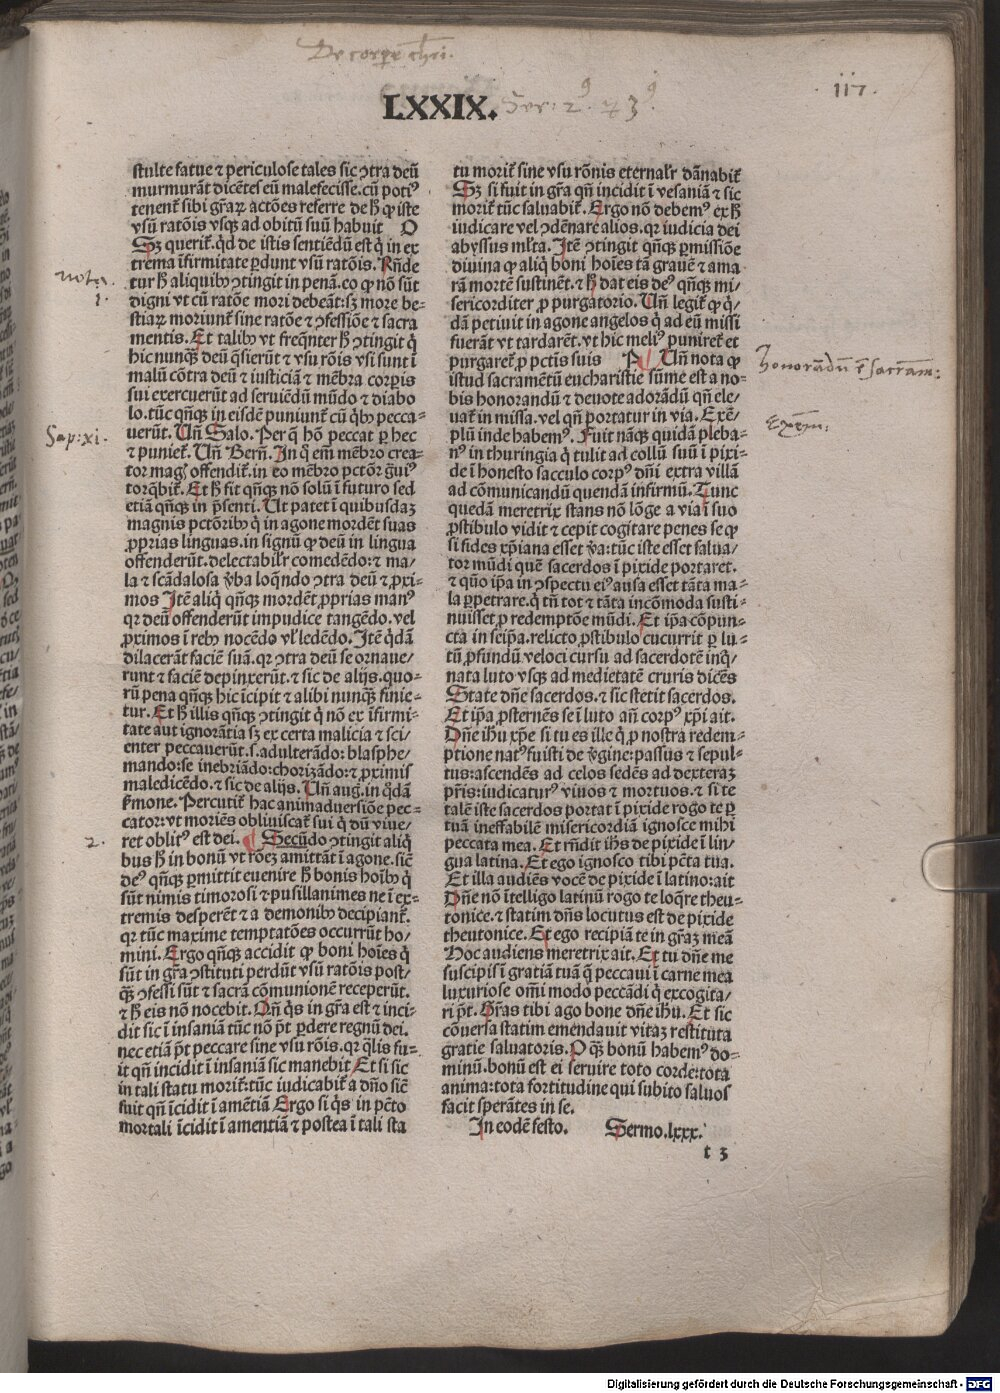 De corpore christi.
LXXIX. Ser: 2⁹ et 3⁹
117.
stulte fatue ⁊ periculose tales sic ꝯtra deū
murmurāt dicētes eū malefecisse. cū potiꝰ
tenent̃ sibi gr̄aꝝ actōes referre de h̄ ꝙ iste
vsū ratōis vsqꝫ ad obitū suū habuit O
Sꝫ querit̃. qd̓ de istis sentiēdū est q̇ in ex
trema ifirmitate ꝑdunt vsū ratōis. Rñde
tur h̄ aliquibꝰ ꝯtingit in penā. eo ꝙ nō sūt
digni vt cū ratōe mori debeāt: sꝫ more be-
stiaꝝ moriunt̃ sine ratōe ⁊ ꝯfessiōe ⁊ sacra
mentis. Et talibꝰ vt freqn̄ter h̄ ꝯtingit q̇
hic nunqꝫ deū q̄sierūt ⁊ vsu rōis vsi sunt ī
malū cōtra deū ⁊ iusticiā ⁊ mēbra corpis
sui exercuerūt ad seruiēdū mūdo ⁊ diabo
lo. tūc qñqꝫ in eisdē puniunt̃ cū q̇bꝰ pecca-
uerūt. Vñ Salo. Per q̄ hō peccat ꝑ hec
⁊ puniet̃. Vñ Bern̄. In q̇ em̄ mēbro crea-
tor mag̓ offendit̃. in eo mēbro pctōr g̓uiꝰ
torq̄bit̃. Et h̄ fit qñqꝫ nō solū ī futuro sed
etiā qñqꝫ in p̄senti. Ut patet ī quibusdaꝫ
magnis pctōribꝰ q̇ in agone mordēt suas
ꝓprias linguas. in signū ꝙ deū in lingua
offenderūt. delectabilr̄ comedēdo: ⁊ ma/
la ⁊ scādalosa v̓ba loq̄ndo ꝯtra deū ⁊ ꝓxi-
mos Itē aliq̇ qñqꝫ mordēt ꝓprias manꝰ
qꝛ deū offenderūt impudice tangēdo. vel
ꝓximos ī rebꝰ nocēdo vl̓ ledēdo. Itē q̇dā
dilacerāt faciē suā. qꝛ ꝯtra deū se ornaue/
runt ⁊ faciē depinxerūt. ⁊ sic de alijs. quo-
rū pena qñqꝫ hic īcipit ⁊ alibi nunqꝫ finie-
tur. Et h̄ illis qñqꝫ ꝯtingit q̇ nō ex īfirmi-
tate aut ignorātia sꝫ ex certa malicia ⁊ sci/
enter peccauerūt. s. adulterādo: blasphe/
mando: se inebriādo: chorizādo: ⁊ ꝓximis
maledicēdo. ⁊ sic de alijs. Vñ aug. in q̇dā
s̓mone. Percutit̃ hac animaduersiōe pec-
cator: vt moriēs obliuiscat̃ sui q̇ dū viue/
ret oblitꝰ est dei. ¶ Secūdo ꝯtingit aliq̇
bus h̄ in bonū vt rōeꝫ amittāt ī agone. sic̄
deꝰ qñqꝫ ꝑmittit euenire h̄ bonis hoībꝰ q̇
sūt nimis timorosi ⁊ pusillanimes ne ī ex-
tremis desperēt ⁊ a demonibꝰ decipiant̃.
qꝛ tūc maxime temptatōes occurrūt ho/
mini. Ergo qñqꝫ accidit ꝙ boni hoīes q̇
sūt in gr̄a ꝯstituti perdūt vsū ratōis post/
qꝫ ꝯfessi sūt ⁊ sacrā cōmunionē receperūt.
⁊ h̄ eis nō nocebit. Dñ q̇s in gr̄a est ⁊ inci-
dit sic ī insaniā tūc nō pt̄ ꝑdere regnū dei.
nec etiā pt̄ peccare sine vsu rōis. qꝛ q̄lis fu-
it qñ incidit ī insaniā sic manebit Et si sic
in tali statu morit̃: tūc iudicabit̃ a dn̄o sic̄
fuit qñ īcidit ī amētiā Ergo si q̇s in pc̄to
mortali īcidit ī amentiā ⁊ postea ī tali sta
tu morit̃ sine vsu rōnis eternalr̄ dānabit̃
Sꝫ si fuit in gr̄a qñ incidit ī vesaniā ⁊ sic
morit̃ tūc saluabit̃. Ergo nō debemꝰ ex h̄
iudicare vel ꝯdēnare alios. qꝛ iudicia dei
abyssus ml̄ta. Itē ꝯtingit qñqꝫ ꝑmissiōe
diuina ꝙ aliq̇ boni hoīes tā grauē ⁊ ama
rā mortē sustinēt. ⁊ h̄ dat eis deꝰ qñqꝫ mi/
sericorditer ꝓ purgatorio. Vñ legit̃ ꝙ q̇/
dā petiuit in agone angelos q̇ ad eū missi
fuerāt vt tardarēt. vt hic meliꝰ puniret̃ et
purgaret̃ ꝓ pctīs suis P ¶ Vñ nota ꝙ
istud sacramētū eucharistie sūme est a no-
bis honorandū ⁊ deuote adorādū qñ ele/
uat̃ in missa. vel qñ portatur in via. Exē/
plū inde habemꝰ. Fuit nāqꝫ quidā pleba-
nꝰ in thuringia q̇ tulit ad collū suū ī pixi-
de ī honesto sacculo corpꝰ dn̄i extra villā
ad cōmunicandū quendā infirmū. Tunc
quedā meretrix stans nō lōge a via ī suo
ꝓstibulo vidit ⁊ cepit cogitare penes se ꝙ
si fides xp̄iana esset v̓a: tūc iste esset salua/
tor mūdi quē sacerdos ī pixide portaret.
⁊ quō ip̄a in ꝯspectu eiꝰ ausa esset tāta ma-
la ꝑpetrare. q̇ tn̄ tot ⁊ tāta incōmoda susti-
nuisset ꝓ redemptōe mūdi. Et ip̄a cōpun-
cta in seip̄a. relicto ꝓstibulo cucurrit ꝑ lu-
tū ꝓfundū veloci cursu ad sacerdotē inq̇/
nata luto vsqꝫ ad medietatē cruris dicēs
State dn̄e sacerdos. ⁊ sic stetit sacerdos.
Et ip̄a ꝓsternēs se ī luto añ corpꝰ xp̄i ait.
Dn̄e ihū xp̄e si tu es ille q̇ ꝓ nostra redem-
ptione natꝰ fuisti de v̓gine: passus ⁊ sepul-
tus: ascendēs ad celos sedēs ad dexteraꝫ
pr̄is: iudicaturꝰ viuos ⁊ mortuos. ⁊ si te
talē iste sacerdos portat ī pixide rogo te ꝑ
tuā ineffabilē misericordiā ignosce mihi
peccata mea. Et rn̄dit ihs de pixide ī lin/
gua latina. Et ego ignosco tibi pc̄ta tua.
Et illa audiēs vocē de pixide ī latino: ait
Dn̄e nō ītelligo latinū rogo te loq̄re theu-
tonice. ⁊ statim dn̄s locutus est de pixide
theutonice. Et ego recipiā te in gr̄aꝫ meā
Hoc audiens meretrix ait. Et tu dn̄e me
suscipis ī gratiā tuā q̄ peccaui ī carne mea
luxuriose om̄i modo peccādi q̇ excogita/
ri pt̄. Gr̄as tibi ago bone dn̄e ihū. Et sic
cōuersa statim emendauit vitaꝫ restituta
gratie saluatoris. O qꝫ bonū habemꝰ do-
minū. bonū est ei seruire toto corde: tota
anima: tota fortitudine qui subito saluos
facit sperātes in se.
In eodē festo. Sermo. lxxx.
t 3
nota
1.
Sap: xi.
2.
honorandū ē sacram:
Exem:
Digitalisierung gefördert durch die Deutsche Forschungsgemeinschaft - DFG